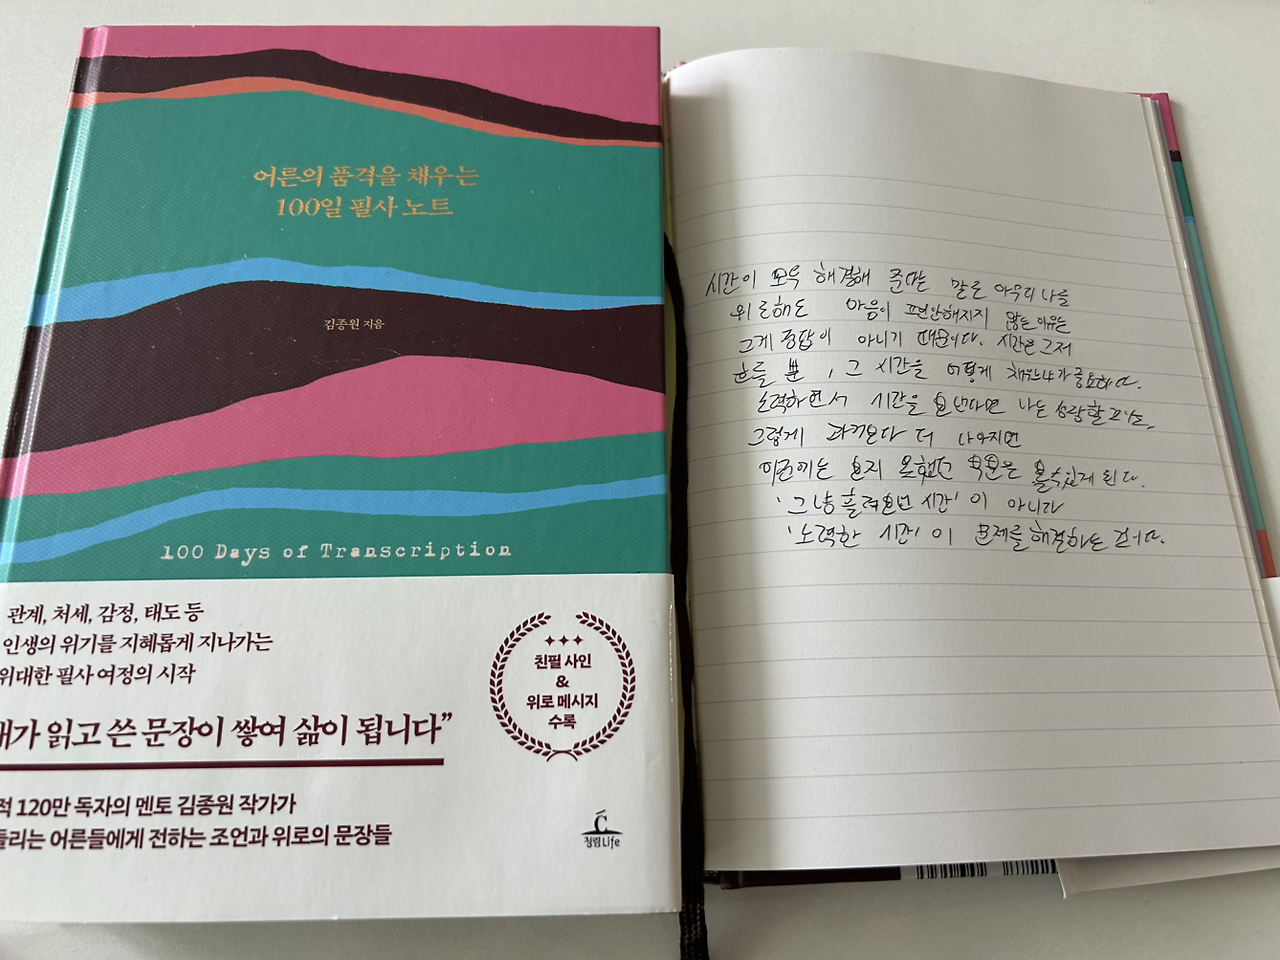 어른의 품격을 채우는
100일 필사 노트
김종원 지음
100 Days of Transcription
관계, 처세, 감정, 태도 등
인생의 위기를 지혜롭게 지나가는
위대한 필사 여정의 시작
내가 읽고 쓴 문장이 쌓여 삶이 됩니다”
적 120만 독자의 멘토 김종원 작가가
들리는 어른들에게 전하는 조언과 위로의 문장들
친필 사인
&
위로 메시지
수록
청림Life
시간이 모두 해결해 준다는 말로 아무리 나를
위로해도 마음이 편안해지지 않는 이유는
그게 정답이 아니기 때문이다. 시간은 그저
흐를 뿐, 그 시간을 어떻게 채우느냐가 중요하다.
노력하면서 시간을 보낸다면 나는 성장할 것이고,
그렇게 과거보다 더 나아지면
이전에는 보지 못했던 부분을 볼 수 있게 된다.
'그냥 흘려보낸 시간'이 아니라
'노력한 시간'이 문제를 해결하는 것이다.